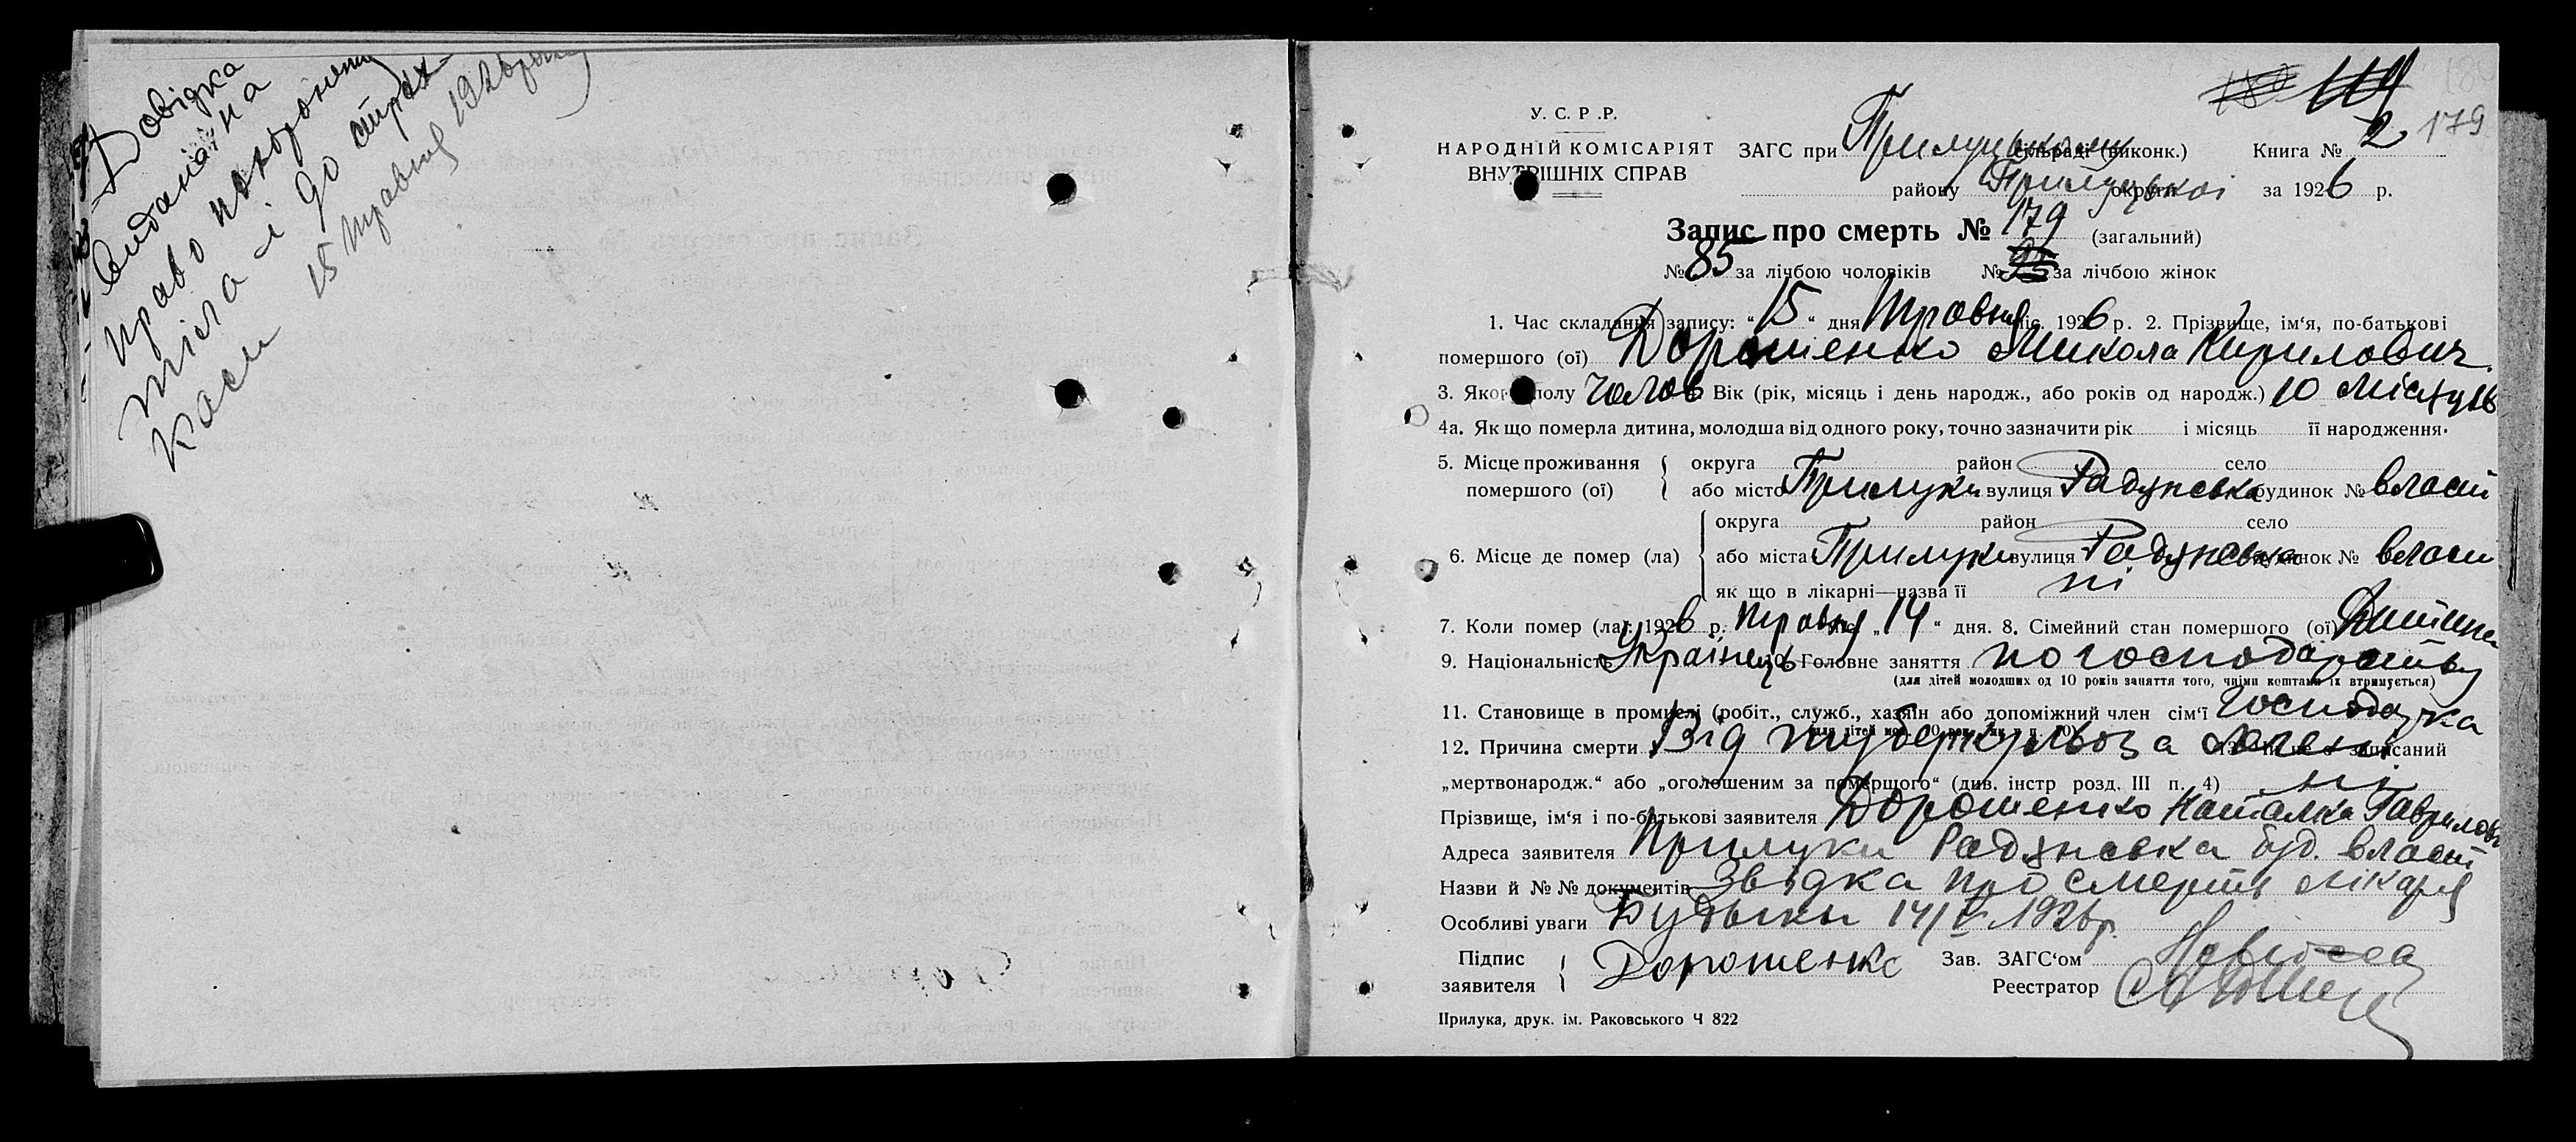 Довідка
видана на
право похорону
тіла і до страх
каси 15 травня 1926 року
114
179
У. С. Р. Р.
НАРОДНІЙ КОМІСАРІЯТ
ВНУТРІШНІХ СПРАВ
ЗАГС при Прилуцькому сільраді (виконк.) Книга № 2
району Прилуцької округи за 1926 р.
Запис про смерть № 179 (загальний)
№ 85 за лічбою чоловіків № за лічбою жінок
1. Час складання запису: " 15 " дня Травня міс. 1926 р. 2. Прізвище, ім'я, по-батькові
помершого (ої) Дорошенко Микола Кирилович
3. Якого полу Чолов 4. Вік (рік, місяць і день народж., або років од народж.) 10 місяців
4а. Як що померла дитина, молодша від одного року, точно зазначити рік і місяць її народження.
5. Місце проживання округа район село
помершого (ої) або місто Прилуки вулиця будинок № власн
округа район село
6. Місце де помер (ла) або міста Прилуки вулиця будинок № власн
як що в лікарні—назва її ні
7. Коли помер (ла): 1926 р. травня міс. „ 14 “ дня. 8. Сімейний стан помершого (ої) Дитина
9. Національність Українець 10. Головне заняття по господарству
(для дітей молодших од 10 років заняття того, чиїми коштами їх втримується)
11. Становище в промислі (робіт., служб., хазяїн або допоміжний член сім'ї господарка
12. Причина смерти Від туберкульоза легень записаний
„мертвонародж.“ або „оголошеним за помершого“ (див. інстр розд. III п. 4) ні
Прізвище, ім'я і по-батькові заявителя Дорошенко Наталка Гаврилов
Адреса заявителя Прилуки буд. власн
Назви й №№ документів Звідка про смерть лікаря
Особливі уваги 14/V 1926 р.
Підпис
заявителя Дорошенко Зав. ЗАГС'ом
Реестратор
Прилука, друк. ім. Раковського Ч 822